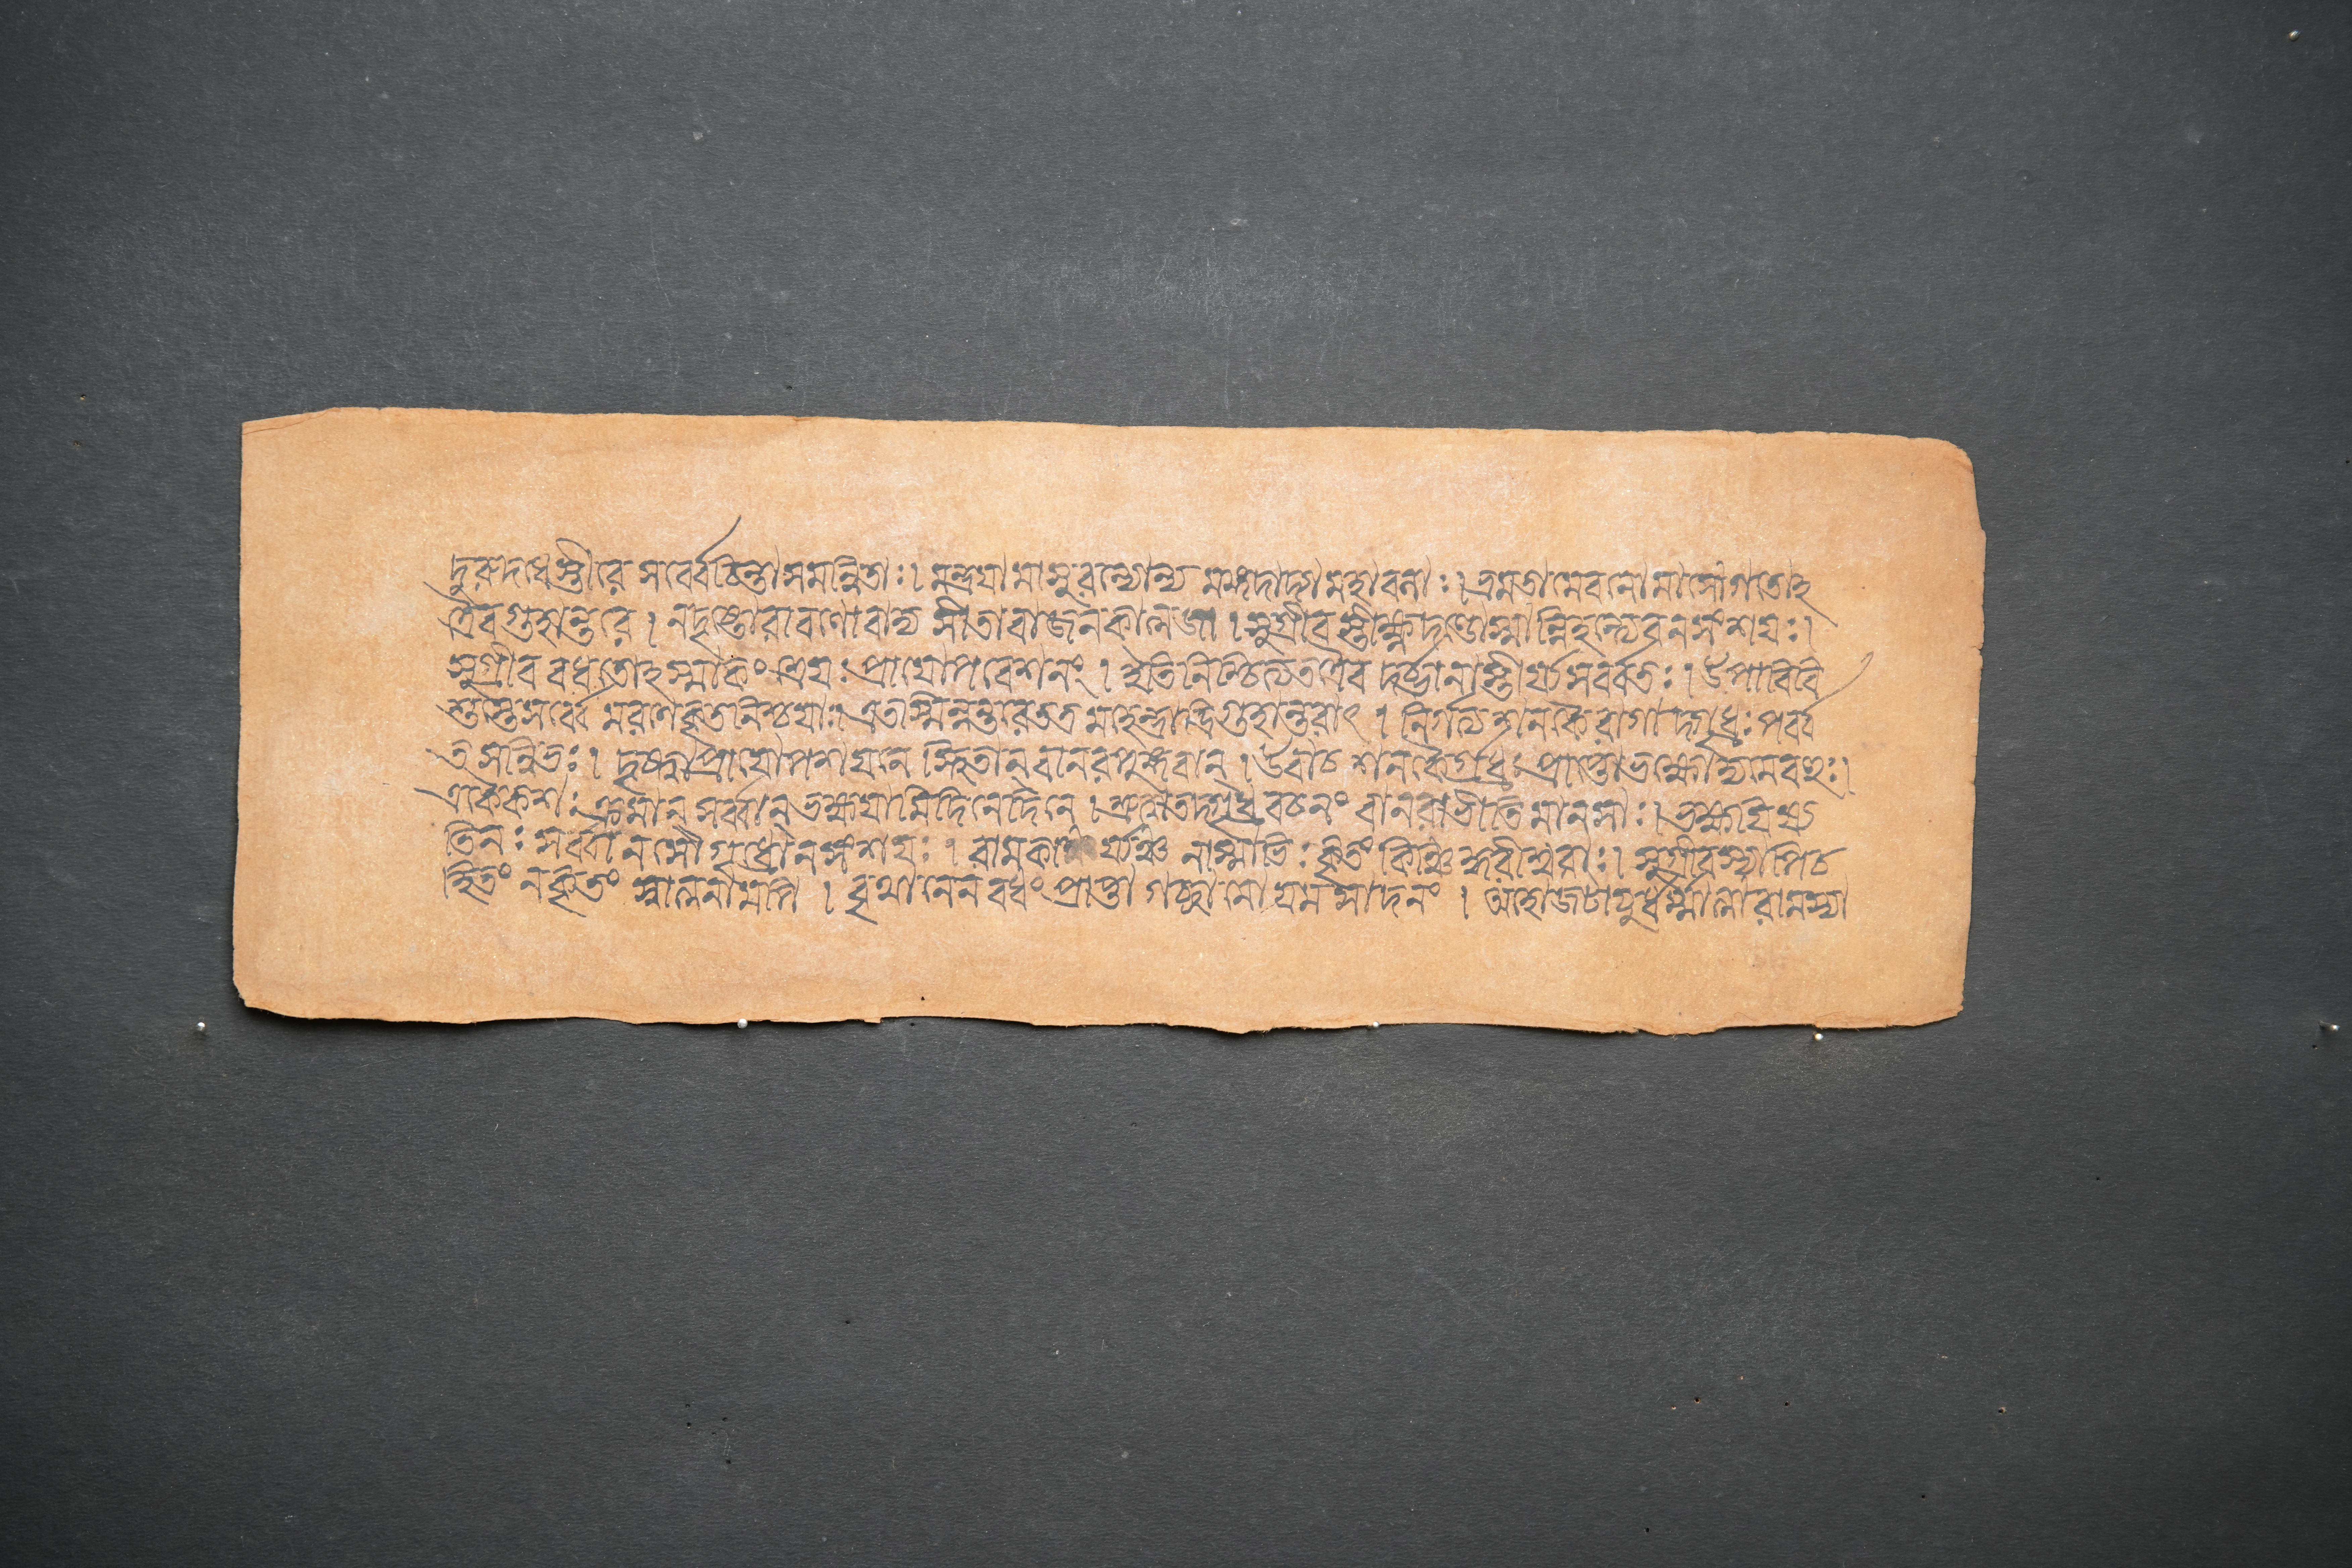 দুরুদধেস্তীরে সর্ব্বে চিন্তাসমন্বিতাঃ। মন্ত্রযামাসুরন্যোন্য মঙ্গদাদ্যা মহাবলাঃ। ভ্রমতামেবনোমাসো গতোহ
ত্রৈব গুহান্তরে। নদৃষ্টোরাবণোবাদ্য সীতাবাজনকাত্মজা। সুগ্রীবস্তীক্ষ্ণদণ্ডোস্মান্নিহন্ত্যেবনসংশযঃ।
সুগ্রীব বধতোহস্মাকং শ্রেযঃ প্রাযোপবেশনং। ইতিনিশ্চিত্যতত্রৈব দর্ভানাস্তীর্য্যসর্ব্বতঃ। উপাবিবি
শুস্তেসর্ব্বে মরণেকৃতনিশ্চযাঃ। এতস্মিন্নন্তরেতত্র মহেন্দ্রাদ্রিগুহান্তরাৎ। নির্গত্যশনকৈরাগাদ্গৃধ্রঃ পর্ব্ব
ত সন্নিভঃ। দৃষ্ট্বাপ্রাযোপবেশেন স্থিতান্ বানরপুঙ্গবান্। উবাচ শনকৈর্গৃধ্রঃ প্রাপ্তোভক্ষ্যোদ্যমেবহুঃ।
একৈকশঃ ক্রমান্ সর্ব্বান্ ভক্ষযামিদিনেদিনে। শ্রুত্বাতদ্গৃধ্রবচনং বানরাভীতিমানসাঃ। ভক্ষযিষ্য
তিনঃ সর্ব্বানসৌগৃধ্রোনসংশযঃ। রামকার্য্যঞ্চ নাস্মাভিঃ কৃতং কিঞ্চিদ্ধরীশ্বরাঃ। সুগ্রীবস্যাপিচ
হিতং নকৃতং স্বাত্মনামপি। বৃথানেন বধং প্রাপ্তা গচ্ছামো যমসাদনং। অহোজটাযুর্ধর্ম্মাত্মা রামস্যা